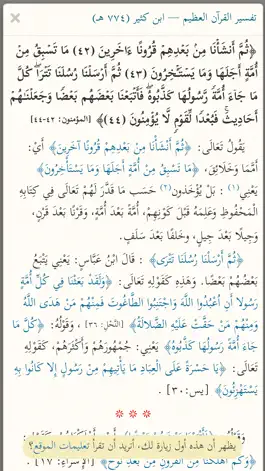 تفسير القرآن العظيم — ابن كثير (٧٧٤ هـ)
﴿ثُمَّ أَنشَأْنَا مِنۢ بَعْدِهِمْ قُرُونًا ءَاخَرِينَ (٤٢) مَا تَسْبِقُ مِنْ
أُمَّةٍ أَجَلَهَا وَمَا يَسْتَـْٔخِرُونَ (٤٣) ثُمَّ أَرْسَلْنَا رُسُلَنَا تَتْرَا۠ كُلَّ
مَا جَآءَ أُمَّةً رَّسُولُهَا كَذَّبُوهُ فَأَتْبَعْنَا بَعْضَهُم بَعْضًا وَجَعَلْنَـٰهُمْ
أَحَادِيثَ فَبُعْدًا لِّقَوْمٍ لَّا يُؤْمِنُونَ (٤٤)﴾ [المؤمنون: ٤٢-٤٤]
يَقُولُ تَعَالَى: ﴿ثُمَّ أَنْشَأْنَا مِنْ بَعْدِهِمْ قُرُونًا آخَرِينَ﴾ أَيْ:
أُمَمًا وَخَلَائِقَ، ﴿مَا تَسْبِقُ مِنْ أُمَّةٍ أَجَلَهَا وَمَا يَسْتَأْخِرُونَ﴾
يَعْنِي(١) : بَلْ يُؤْخَذُونَ(٢) حَسَبَ مَا قَدَّرَ لَهُمْ تَعَالَى فِي كِتَابِهِ
الْمَحْفُوظِ وَعِلْمِهِ قَبْلَ كَوْنِهِمْ، أُمَّةً بَعْدَ أُمَّةٍ، وَقَرْنًا بَعْدَ قَرْنٍ،
وَجِيلًا بَعْدَ جِيلٍ، وخَلَفًا بَعْدَ سَلَفٍ.
﴿ثُمَّ أَرْسَلْنَا رُسُلَنَا تَتْرَى﴾: قَالَ ابْنُ عَبَّاسٍ: يَعْنِي يَتْبَعُ
بَعْضُهُمْ بَعْضًا. وَهَذِهِ كَقَوْلِهِ تَعَالَى: ﴿وَلَقَدْ بَعَثْنَا فِي كُلِّ أُمَّةٍ
رَسُولا أَنِ اُعْبُدُوا اللَّهَ وَاجْتَنِبُوا الطَّاغُوتَ فَمِنْهُمْ مَنْ هَدَى اللَّهُ
وَمِنْهُمْ مَنْ حَقَّتْ عَلَيْهِ الضَّلالَةُ﴾ [النَّحْلِ: ٣٦] ، وَقَوْلُهُ: ﴿كُلَّ مَا
جَاءَ أُمَّةً رَسُولُهَا كَذَّبُوهُ﴾ يَعْنِي: جُمْهُورَهُمْ وَأَكْثَرَهُمْ، كَقَوْلِهِ
تَعَالَى: ﴿يَا حَسْرَةً عَلَى الْعِبَادِ مَا يَأْتِيهِمْ مِنْ رَسُولٍ إِلا كَانُوا بِهِ
يَسْتَهْزِئُونَ﴾ [يس:٣٠] .
* * *
يظهر أن هذه أول زيارة لك، أتريد أن تقرأ تعليمات الموقع؟
﴿وَكَمْ أَهْلَكْنَا مِنَ الْقُرُونِ مِنْ بَعْدِ نُوحٍ﴾ [الإسراء: ١٧] .